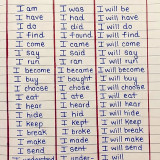 I am I was I will be
I have I had I will have
I do I did I will do
I find I found I will find
I come I came I will come
I say I said I will say
I run I ran I will run
I become I became I will become
I buy I bought I will buy
I choose I chose I will choose
I eat I ate I will eat
I hear I heard I will hear
I hide I hid I will hide
I keep I kept I will keep
I break I broke I will break
I make I made I will make
I send I sent I will send
I understand I under- I will